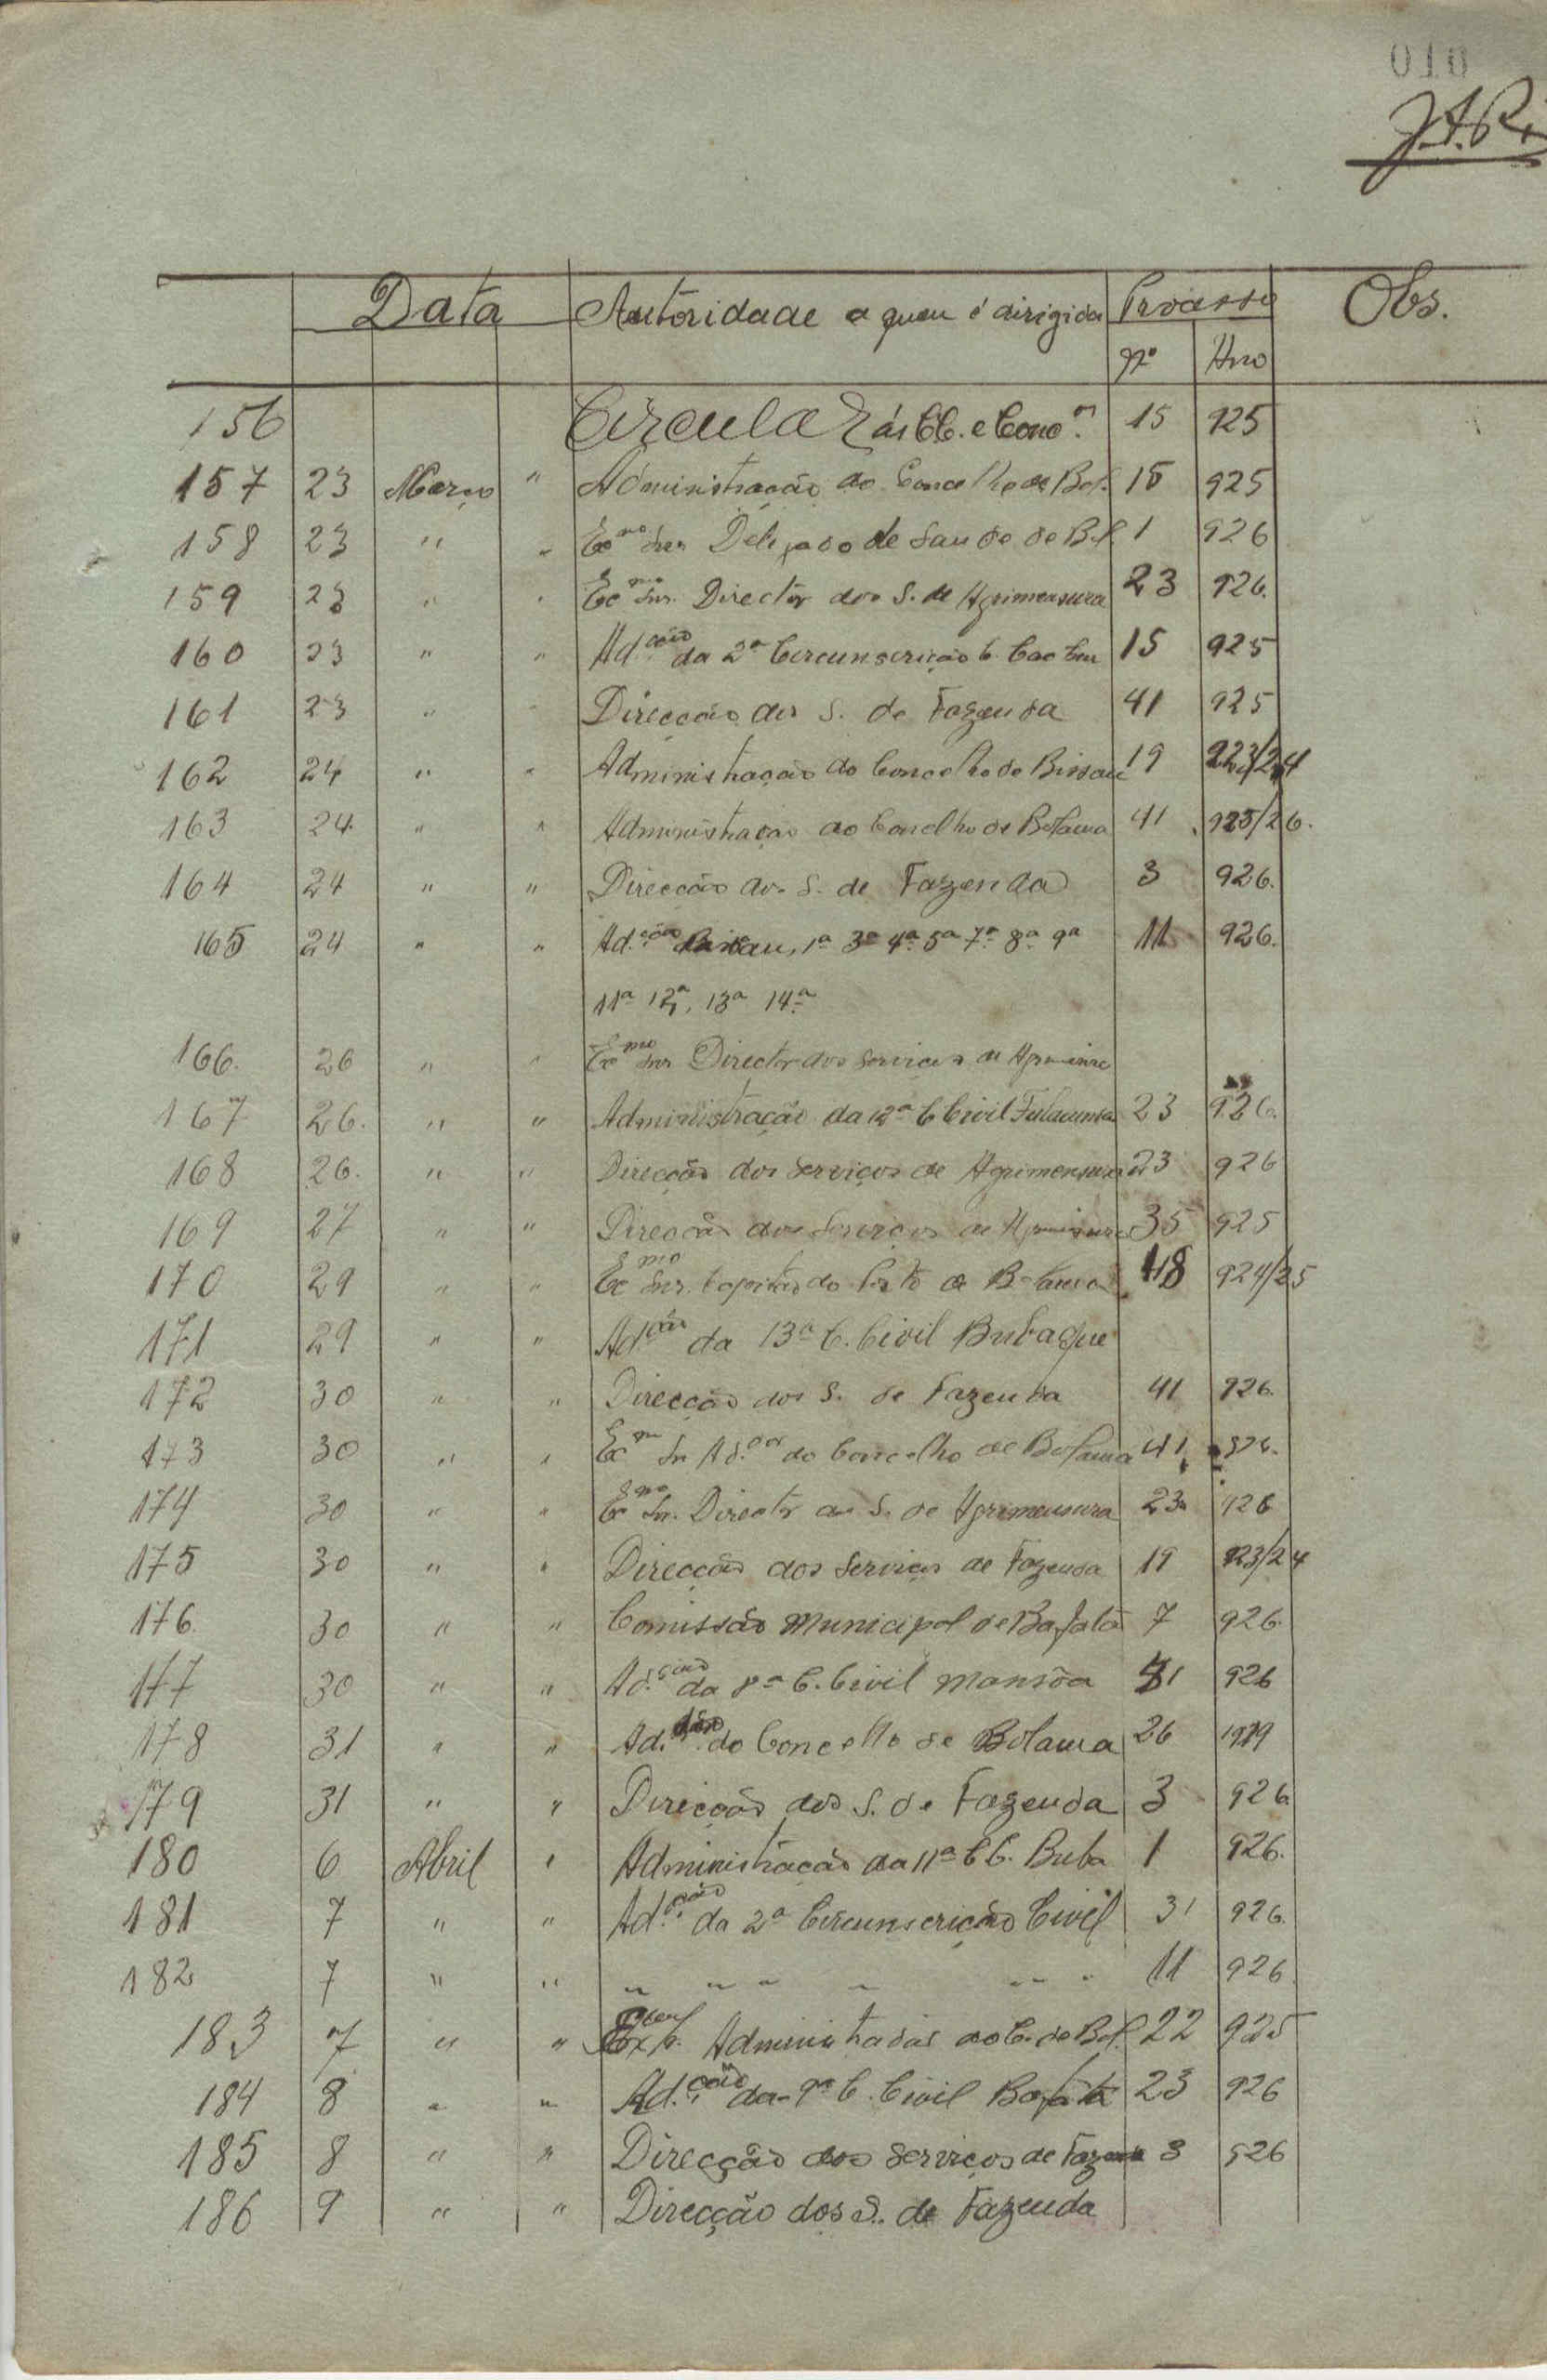 010
J.A.Ri
Data Autoridade a quem é dirigida Processo Obs.
Nº Ano
156 Circular ás CC. e Conc.os 15 925
157 23 Março " Administração do Concelho de Bol. 15 925
158 23 " " Exmo Snr. Delegado de Saude de Bol. 1 926
159 23 " " Exmo Snr. Director dos S. de Agrimensura 23 926.
160 23 " " Ad.ção da 2ª Circunscrição C. Cacheu 15 925
161 23 " " Direcção dos S. de Fazenda 41 925
162 24 " " Administração do Concelho de Bissau 19 923/24
163 24. " " Administração do Concelho de Bolama 41 925/26.
164 24 " " Direcção dos S. de Fazenda 3 926.
165 24 " " Ad.ção Bissau, 1ª 3ª 4ª 5ª 7ª 8ª 9ª 11 926.
11ª 12ª, 13ª 14ª
166. 26 " " Exmo Snr Director dos Serviços de
167 26. " " Administração da 12ª C Civil Fulacunda 23 926.
168 26. " " Direcção dos Serviços de Agrimensura 23 926
169 27 " " Direcção dos Serviços de 35 925
170 29 " " Exmo Snr. Capitão do Porto de Bolama 18 924/25
171 29 " " Adção da 13ª C. Civil Bubaque
172 30 " " Direcção dos S. de Fazenda 41 926.
173 30 " " Exm Sr Ad.dor do Concelho de Bolama 41 926.
174 30 " " Exmo Sr. Director dos S. de Agrimensura 23 926
175 30 " " Direcção dos Serviços de Fazenda 19 923/24
176. 30 " " Comissão Municipal de Bafatá 7 926.
177 30 " " Ad.ção da 8ª C. Civil Mansôa 31 926
178 31 " " Ad. do Concelho de Bolama 26 1919
179 31 " " Direcção dos S. de Fazenda 3 926.
180 6 Abril " Administração da 11ª C C. Buba 1 926.
181 7 " " Ad.ção da 2ª Circunscrição Civil 31 926.
182 7 " " " " " " " " " 11 926.
183 7 " " Administração do C. de Bol. 22 925
184 8 " " Ad.ção da 9ª C. Civil Bafatá 23 926
185 8 " " Direcção dos Serviços de Fazenda 3 926
186 9 " " Direcção dos S. de Fazenda